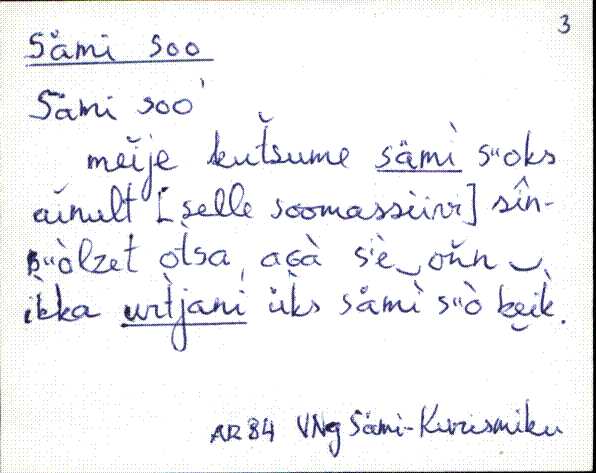 3
Sämi soo
Sämi soo'
meije kutsume sämì s"oks
ainult [selle soomassiivi] sîn-
p"òlzet òtsa, aGà s'è‿oňn‿
ìkka urtjani üks sämì s"ò kĕik.
AR 84 VNg Sämi-Kuristiku